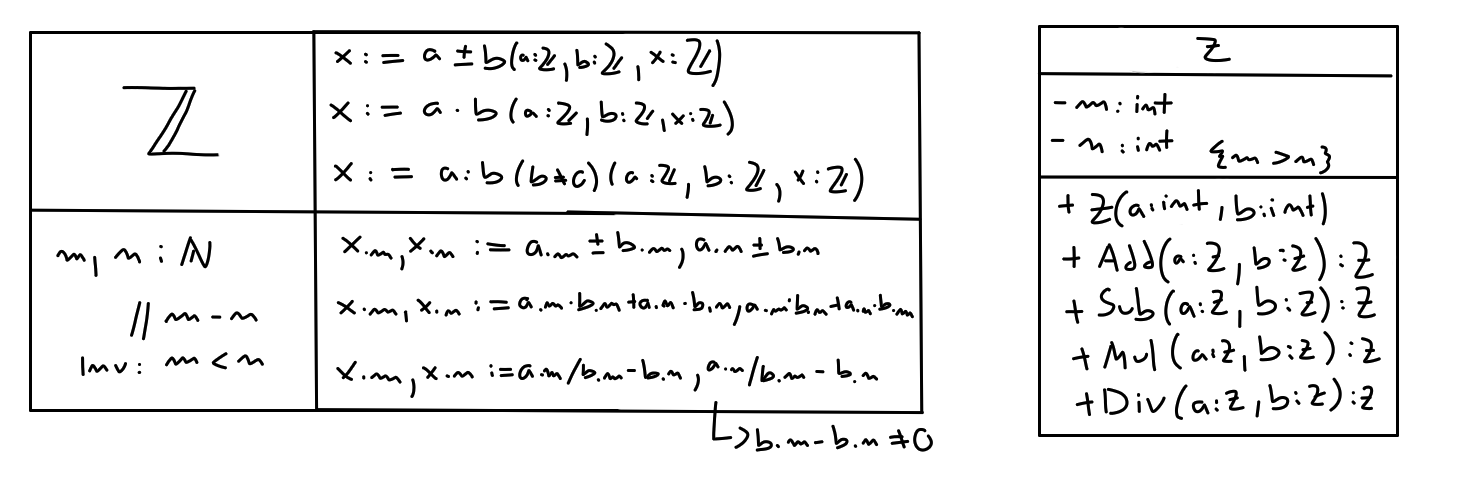 ℤ
x := a ± b (a:ℤ, b:ℤ, x:ℤ)
x := a · b (a:ℤ, b:ℤ, x:ℤ)
x := a : b (b≠0) (a:ℤ, b:ℤ, x:ℤ)
m, n : ℕ
// m - n
Inv: m < n
x.m, x.n := a.m ± b.m, a.n ± b.n
x.m, x.n := a.m·b.m+a.n·b.n, a.m·b.n+a.n·b.m
x.m, x.n := a.m/b.m - b.n, a.n/b.m - b.n
b.m - b.n ≠ 0
Z
- m : int
- n : int {m > n}
+ Z(a:int, b:int)
+ Add(a:Z, b:Z):Z
+ Sub(a:Z, b:Z):Z
+ Mul(a:Z, b:Z):Z
+ Div(a:Z, b:Z):Z